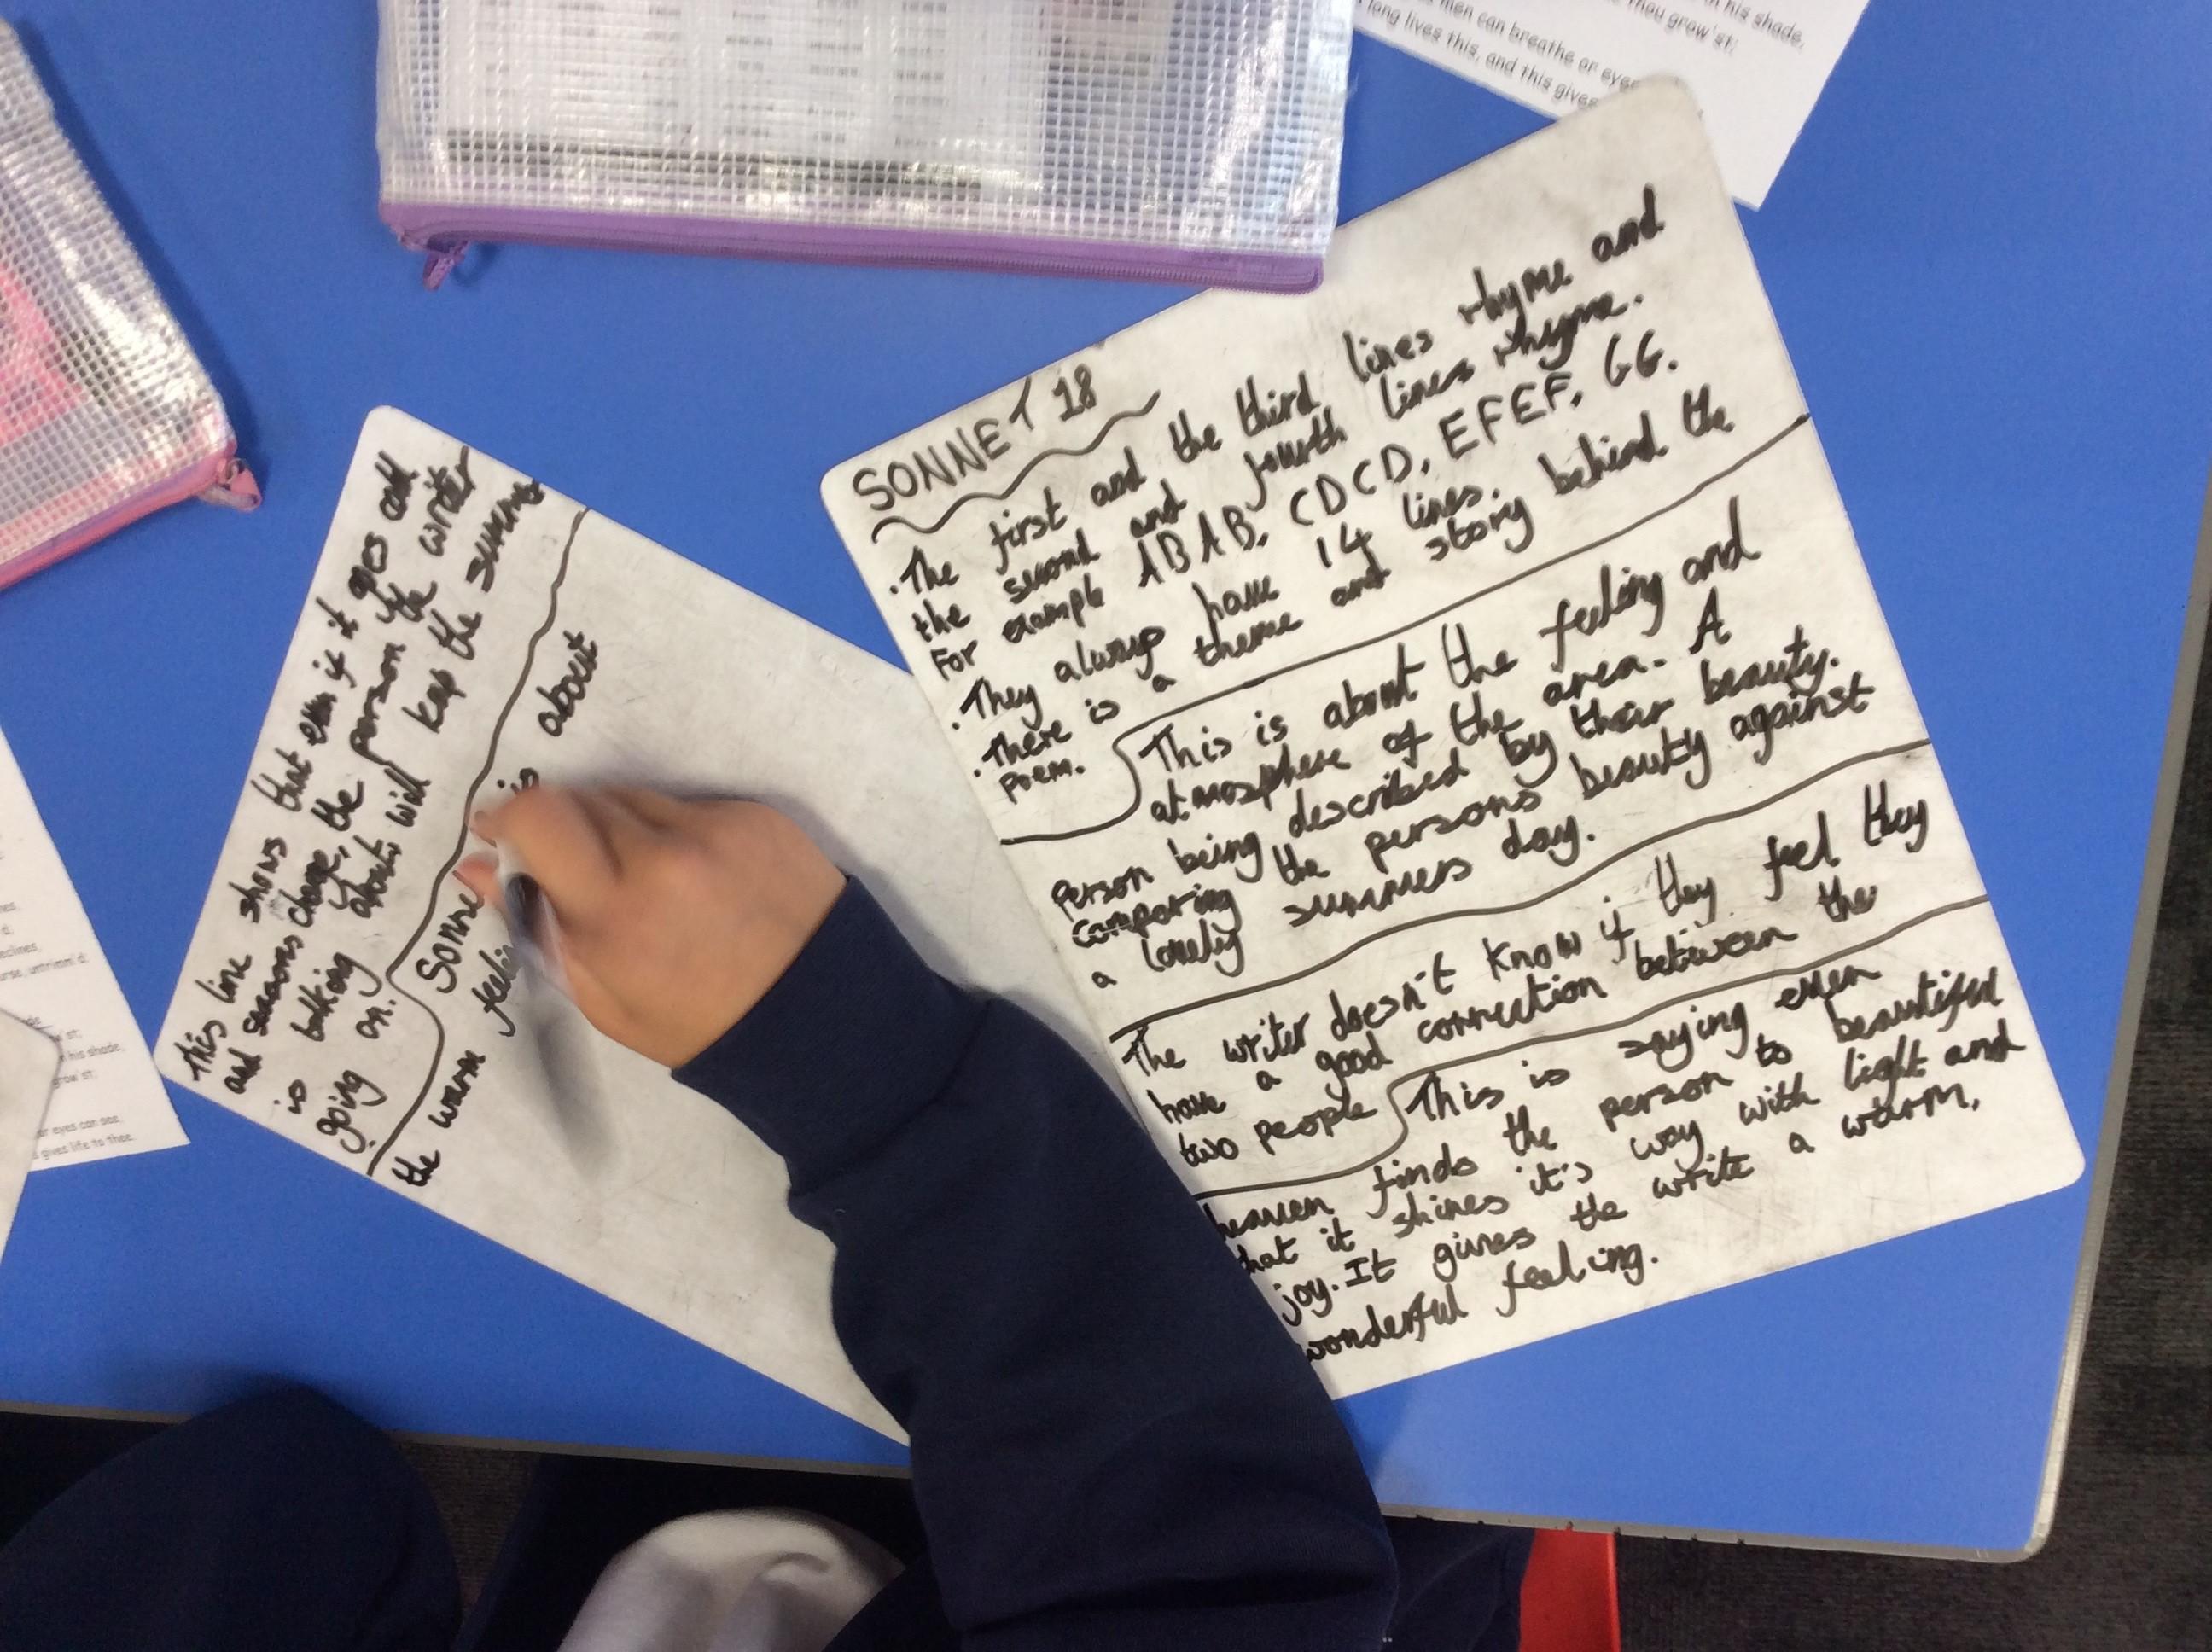 SONNET 18
.The first and the third lines rhyme and
the second and fourth lines rhyme.
For example ABAB, CDCD, EFEF, GG.
.They always have 14 lines.
.There is a theme and story behind the
Poem.
This is about the feeling and
atmosphere of the area. A
person being described by their beauty.
comparing the persons beauty against
a lovely summers day.
The writer doesn't know if they feel they
have a good connection between the
two people
This is saying even
heaven finds the person to beautiful
that it shines it's way with light and
joy. It gives the write a warm,
wonderful feeling.
This line shows that even if it goes cold
and seasons change, the person the writer
is talking about will keep the summer
going on.
is about
the warm
men can breathe or eyes
long lives this, and this gives
his shade,
thou grow'st;
his shade,
grow'st;
eyes can see
gives life to thee.